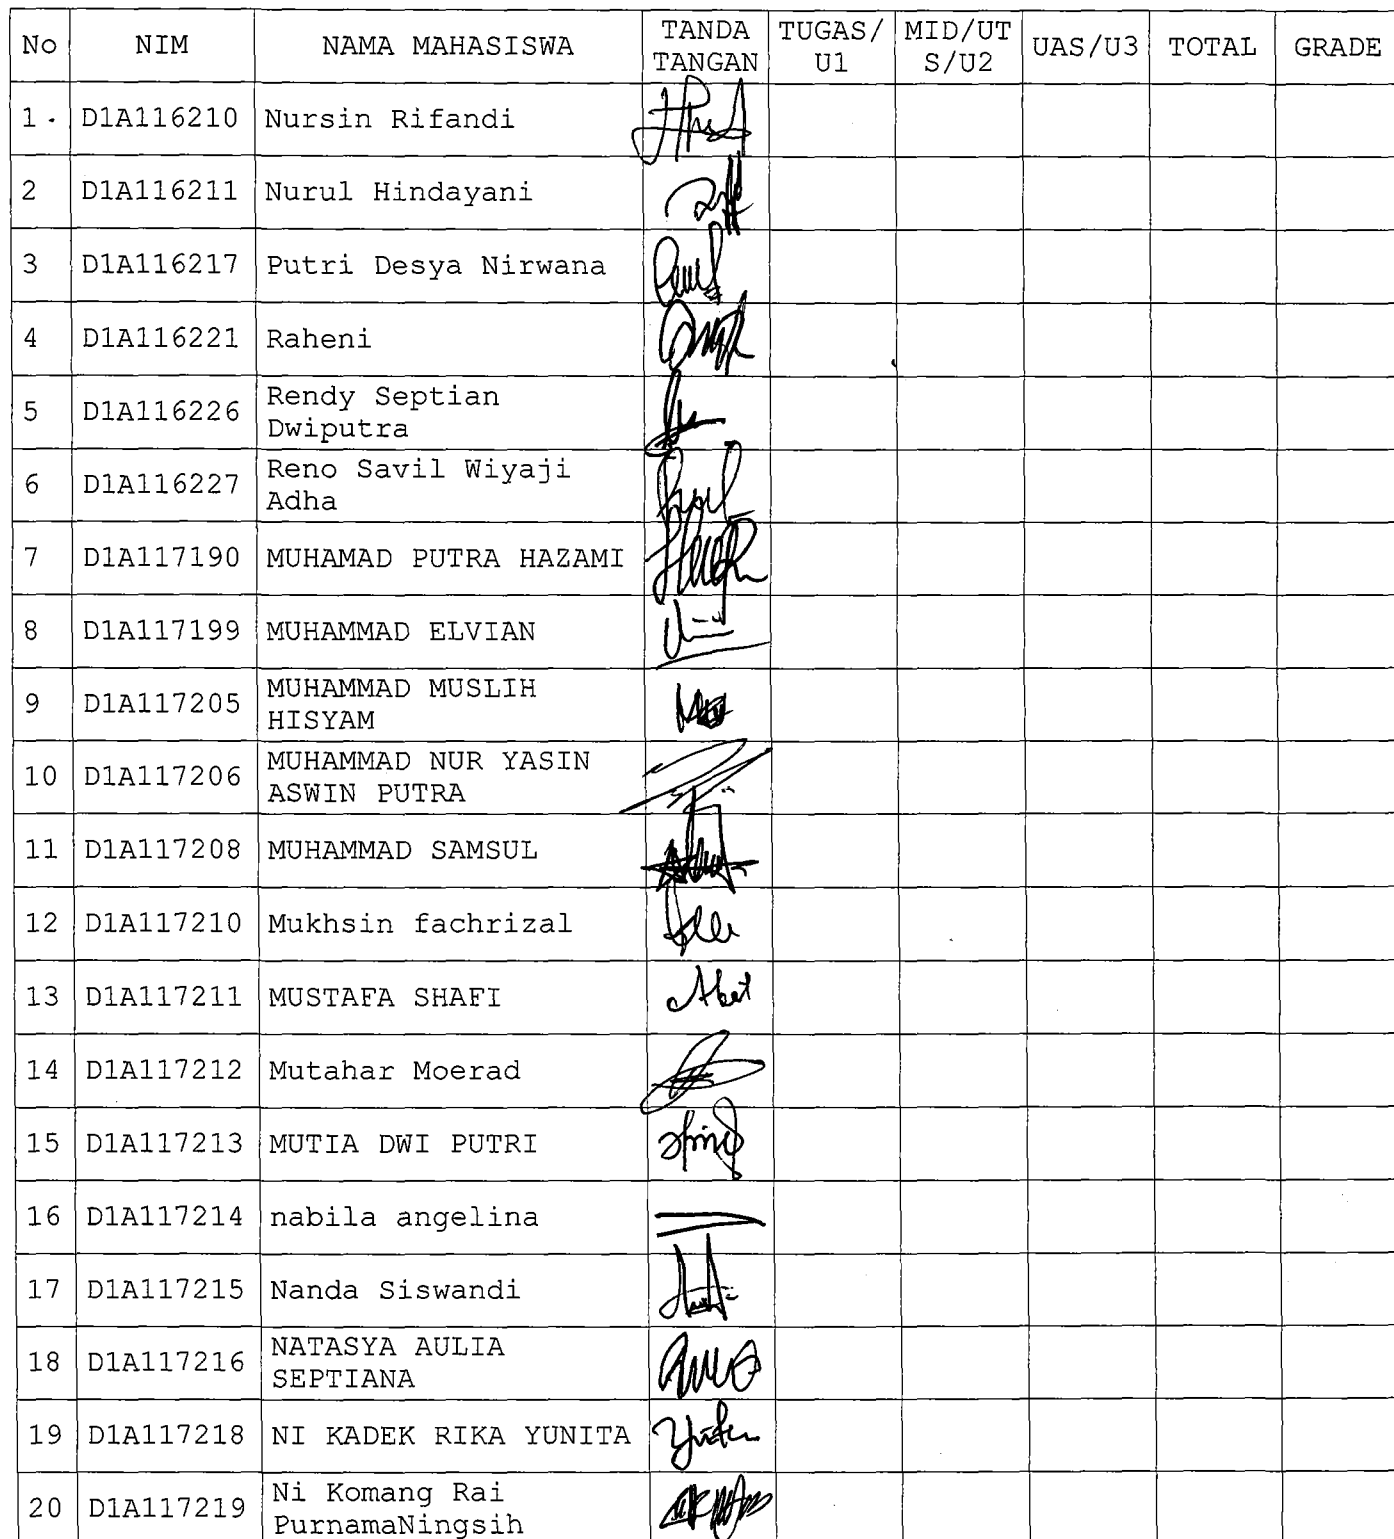 No NIM NAMA MAHASISWA TANDA TANGAN TUGAS/U1 MID/UTS/U2 UAS/U3 TOTAL GRADE
1. D1A116210 Nursin Rifandi
2 D1A116211 Nurul Hindayani
3 D1A116217 Putri Desya Nirwana
4 D1A116221 Raheni
5 D1A116226 Rendy Septian
Dwiputra
6 D1A116227 Reno Savil Wiyaji
Adha
7 D1A117190 MUHAMAD PUTRA HAZAMI
8 D1A117199 MUHAMMAD ELVIAN
9 D1A117205 MUHAMMAD MUSLIH
HISYAM
10 D1A117206 MUHAMMAD NUR YASIN
ASWIN PUTRA
11 D1A117208 MUHAMMAD SAMSUL
12 D1A117210 Mukhsin fachrizal
13 D1A117211 MUSTAFA SHAFI
14 D1A117212 Mutahar Moerad
15 D1A117213 MUTIA DWI PUTRI
16 D1A117214 nabila angelina
17 D1A117215 Nanda Siswandi
18 D1A117216 NATASYA AULIA
SEPTIANA
19 D1A117218 NI KADEK RIKA YUNITA
20 D1A117219 Ni Komang Rai
PurnamaNingsih